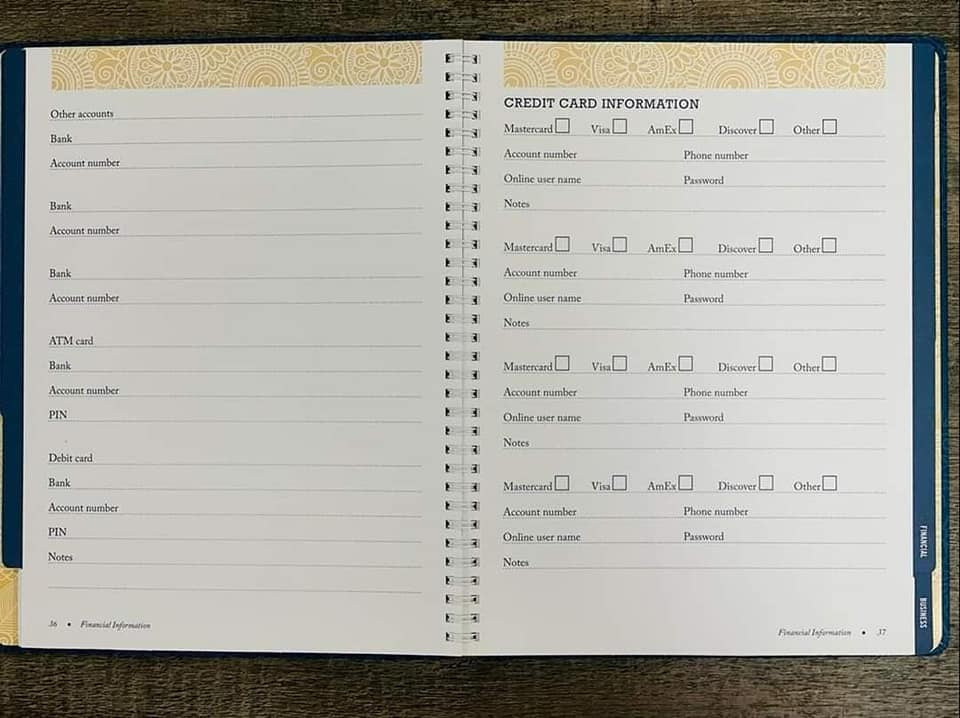 Other accounts
Bank
Account number
Bank
Account number
Bank
Account number
ATM card
Bank
Account number
PIN
Debit card
Bank
Account number
PIN
Notes
36 • Financial Information
CREDIT CARD INFORMATION
Mastercard Visa AmEx Discover Other
Account number Phone number
Online user name Password
Notes
Mastercard Visa AmEx Discover Other
Account number Phone number
Online user name Password
Notes
Mastercard Visa AmEx Discover Other
Account number Phone number
Online user name Password
Notes
Mastercard Visa AmEx Discover Other
Account number Phone number
Online user name Password
Notes
Financial Information • 37
FINANCIAL
BUSINESS